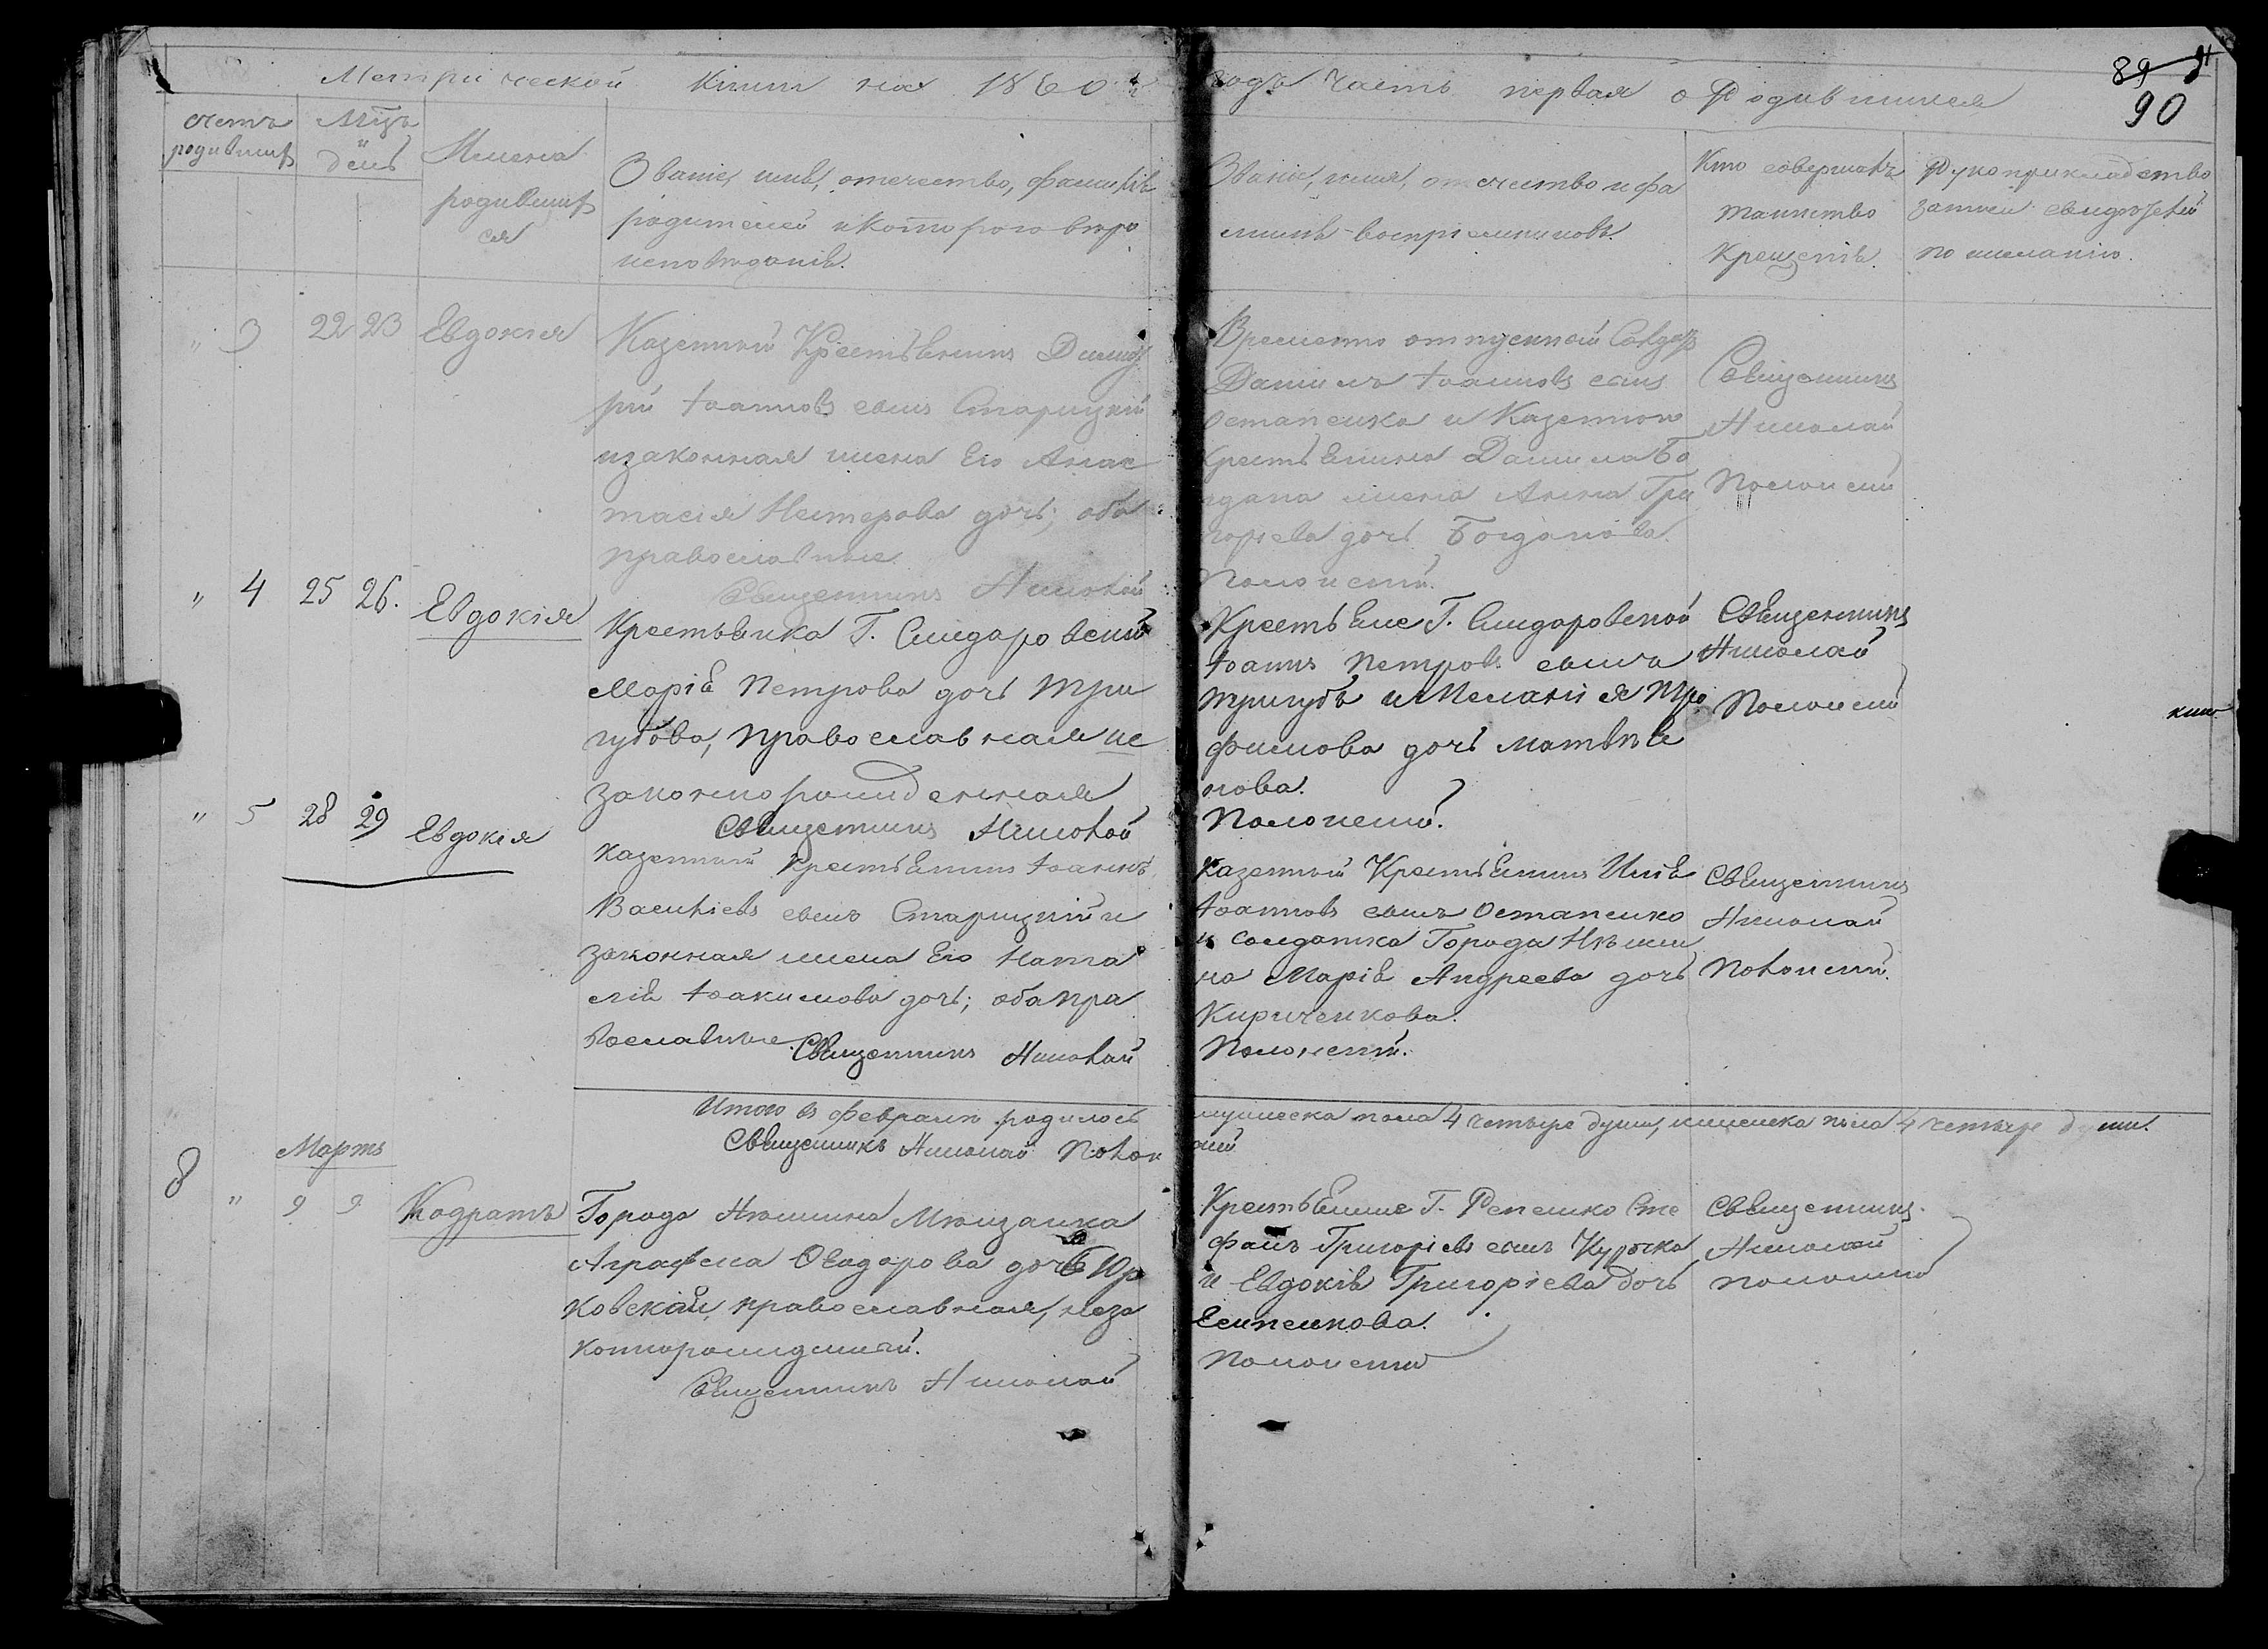 Метрической Книги на 1860й годъ Часть первая о Родившихся
89
90
счетъ родившихся
Мцъ и день
Имена родившихся
Званіе, имя, отечество, фамилія
родителей и которого веро
исповеданія.
Званіе, имя, отечество и фа
милія воспріемниковъ.
Кто совершалъ
таинство
Крещенія.
Рукоприкладство
записи свидетелей
по желанію.
" 3 22 23 Евдокія
Казенный Крестьянинъ Димит
рій Іоанновъ сынъ Старицкій
и законная жена Его Анас
тасія Нестерова дочь; оба
православные
Священникъ Николай
Временно отпускной Солдатъ
Даніилъ Іоанновъ сынъ
Остапенко и Казенного
Крестьянина Даніила Бо
гдана жена Анна Гри
горіева дочь Богданова.
Полонскій.
Священникъ
Николай
Полонскій
" 4 25 26. Евдокія
Крестьянка Г. Сидаровской
Марія Петрова дочь Три
губова, православная не
законнорожденная
Священникъ Николай
Крестьяне Г. Сидаровской
Іоаннъ Петровъ сынъ
Тригубъ и Меланія Тро
фимова дочь Матвѣе
нкова.
Полонскій.
Священникъ
Николай
Полонскій
" 5 28 29 Евдокія
Казенный Крестьянинъ Іоаннъ
Васильевъ сынъ Старицкій и
законная жена Его Ната
лія Іоакимова дочь; оба пра
вославные. Священникъ Николай
Казенный Крестьянинъ Илія
Іоанновъ сынъ Остапенко
и солдатка Города Нѣжи
на Марія Андреева дочь
Кириченкова.
Полонскій.
Священникъ
Николай
Полонскій.
Итого въ Февралѣ родилось мужеска пола 4 четыре души, женска пола 4 четыре души.
Священникъ Николай Полонскій
Мартъ
8 " 9 9 Кодратъ
Города Нѣжина Мѣщанка
Аграфена Ѳеодорова дочь Юр
ковская, православная, неза
коннорожденный.
Священникъ Николай
Крестьяне Г. Репешко Сте
фанъ Григоріевъ сынъ Курочка
и Евдокія Григоріева дочь
Полонскій
Священникъ
Николай
Полонскій